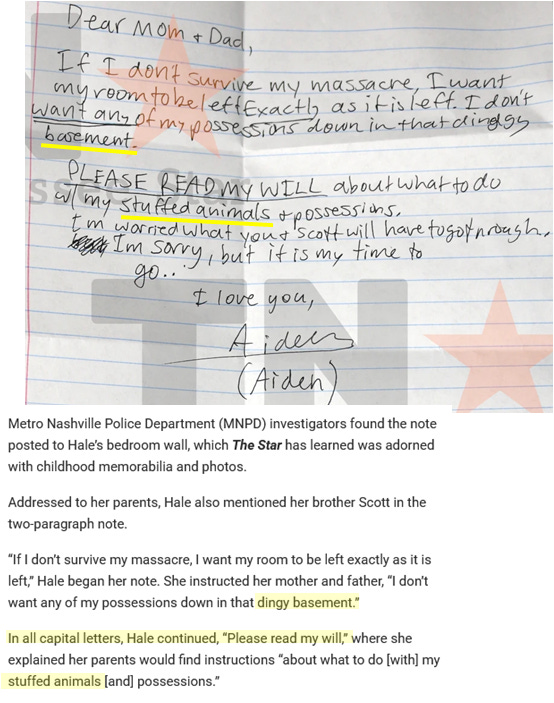 Dear Mom + Dad,
If I don't survive my massacre, I want
my room to be left Exactly as it is left. I don't
want any of my possessions down in that dinggy
basement.
PLEASE READ MY WILL about what to do
w/ my stuffed animals + possessions.
I'm worried what you + scott will have to go through,
Im sorry, but it is my time to
go...
I love you,
Aiden
(Aiden)
TN
Metro Nashville Police Department (MNPD) investigators found the note
posted to Hale's bedroom wall, which The Star has learned was adorned
with childhood memorabilia and photos.
Addressed to her parents, Hale also mentioned her brother Scott in the
two-paragraph note.
“If I don't survive my massacre, I want my room to be left exactly as it is
left,” Hale began her note. She instructed her mother and father, “I don't
want any of my possessions down in that dingy basement.”
In all capital letters, Hale continued, “Please read my will,” where she
explained her parents would find instructions “about what to do [with] my
stuffed animals [and] possessions.”